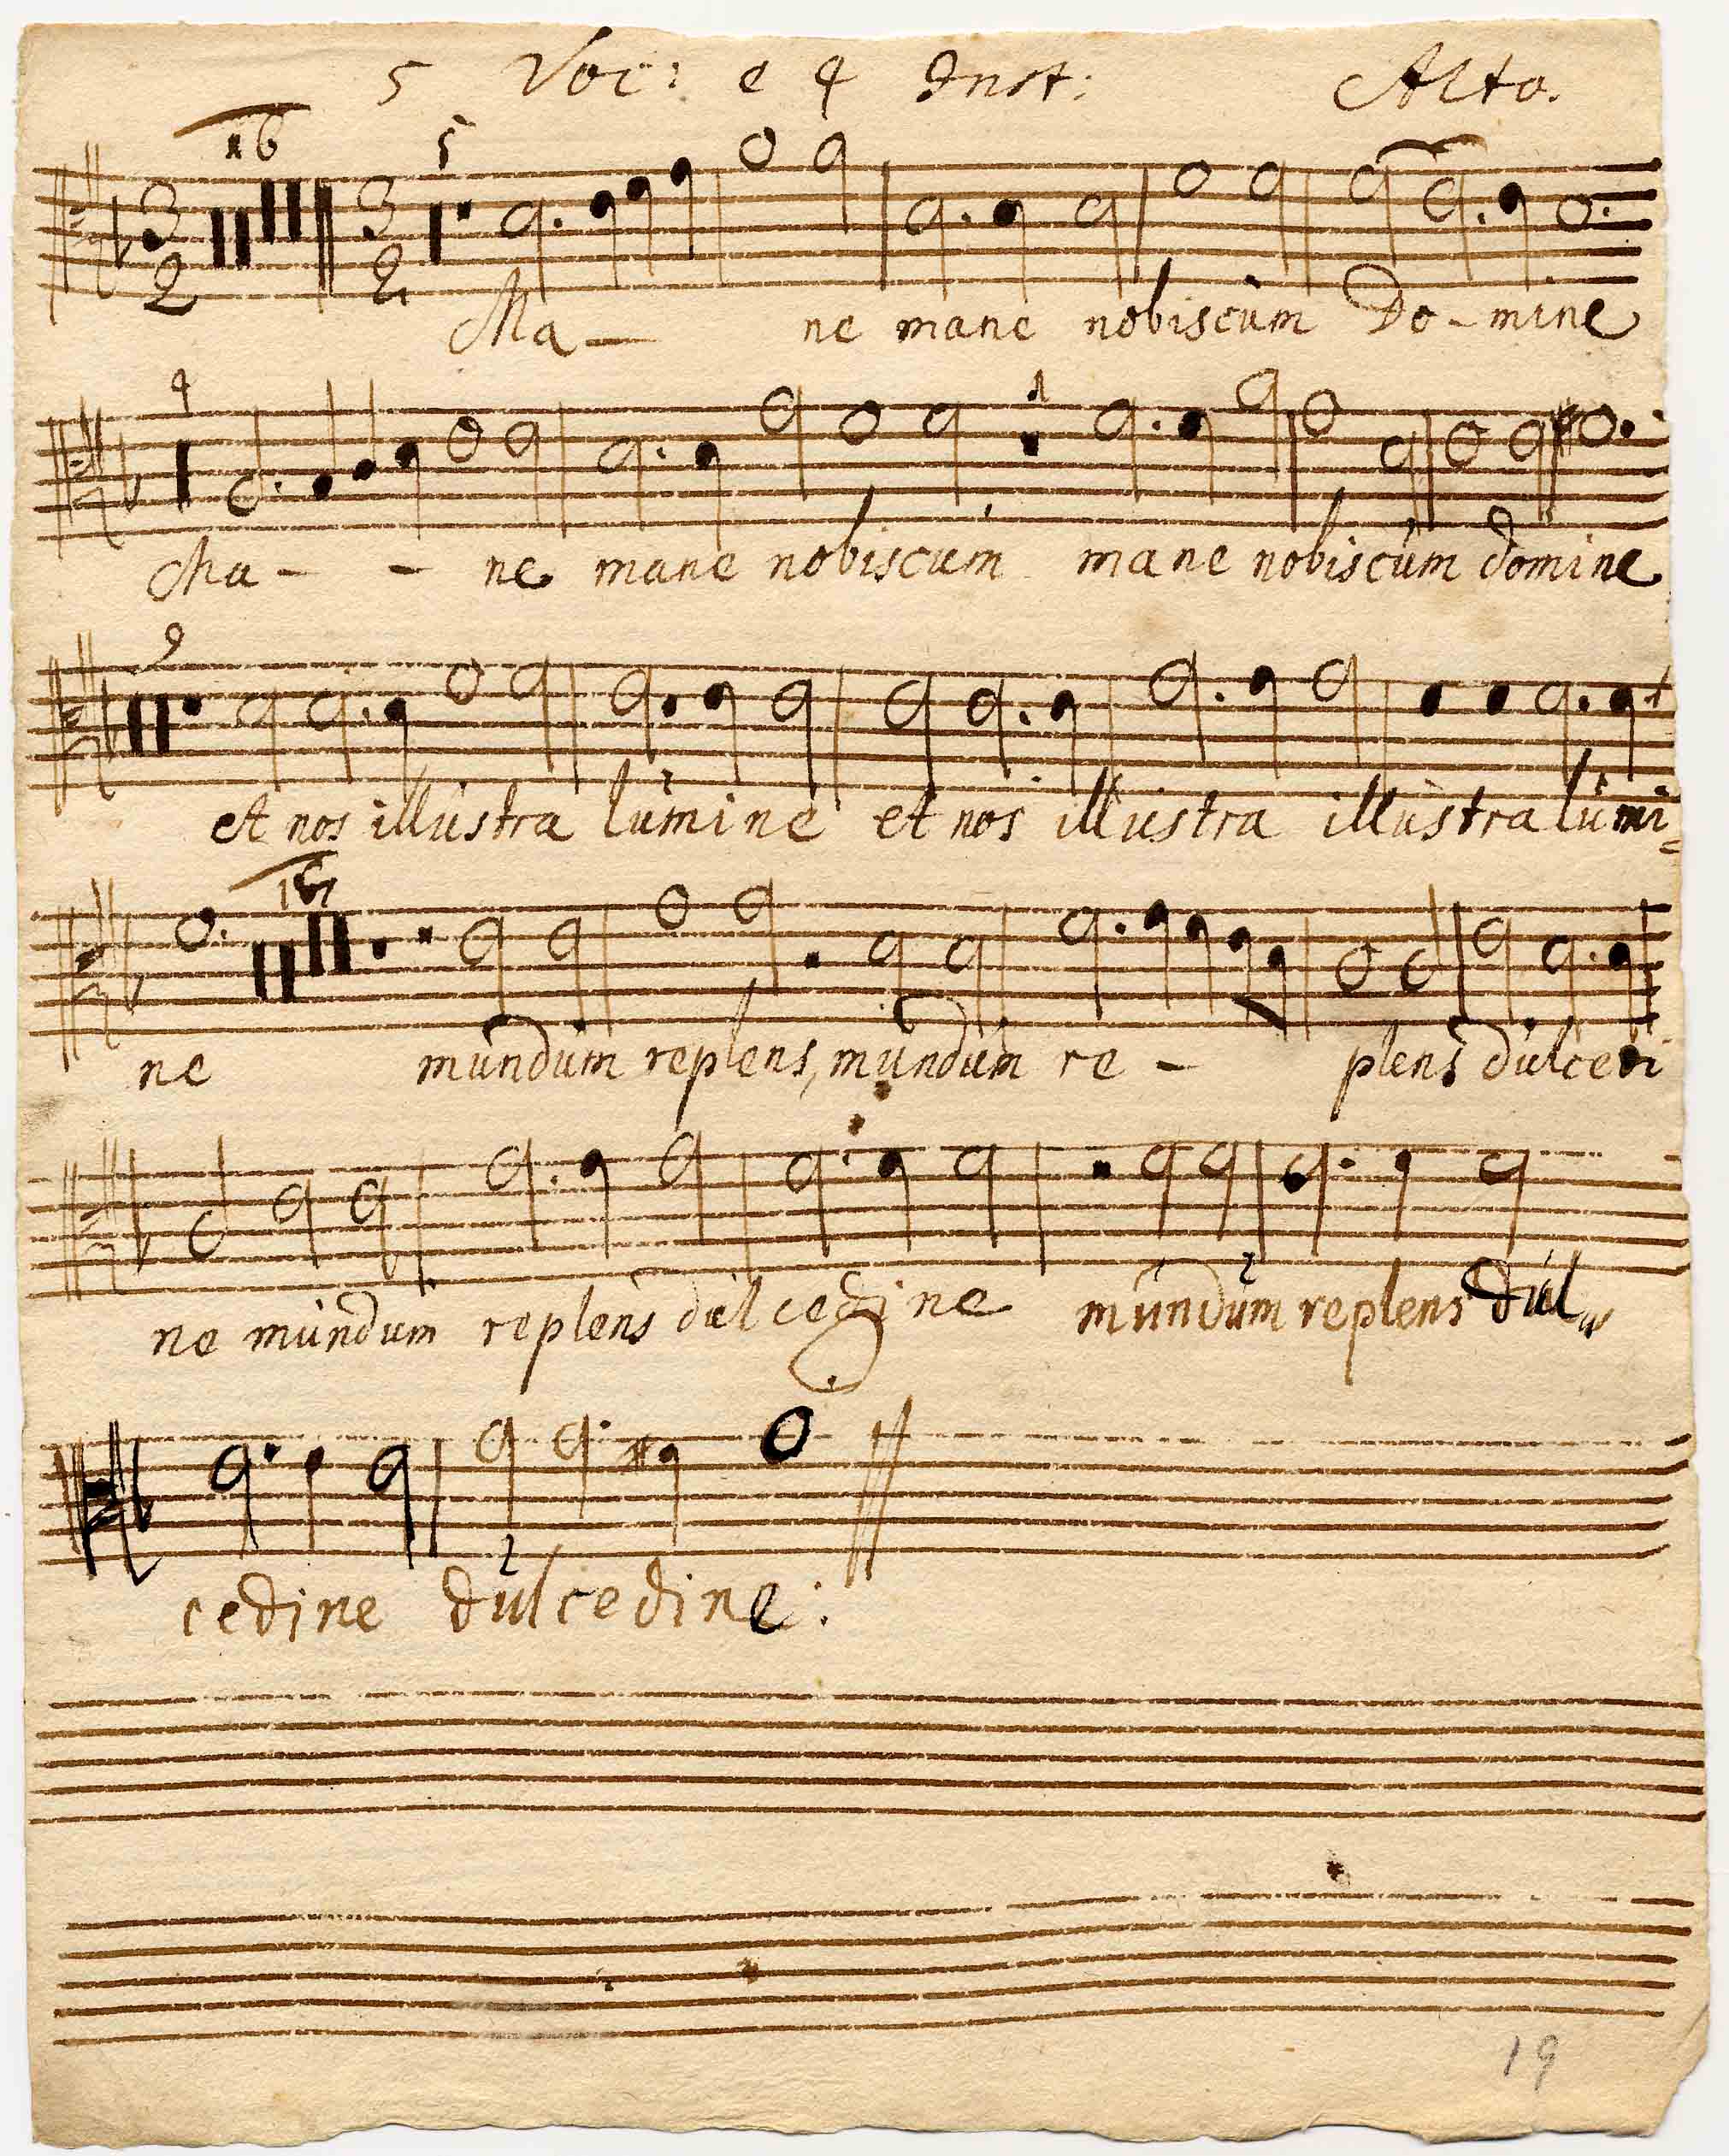 5 Voc: e 4 Inst: Alto.
16 5
3 2 3 2
Ma — ne mane nobiscum Do - mine
4 1
Ma - - ne mane nobiscum mane nobiscum domine
2
et nos illustra lumine et nos illustra illustra lumi=
16
ne mundum replens, mundum re - plens dulcedi
ne mundum replens dulcedine mundum replens dul„
cedine dulcedine:
19